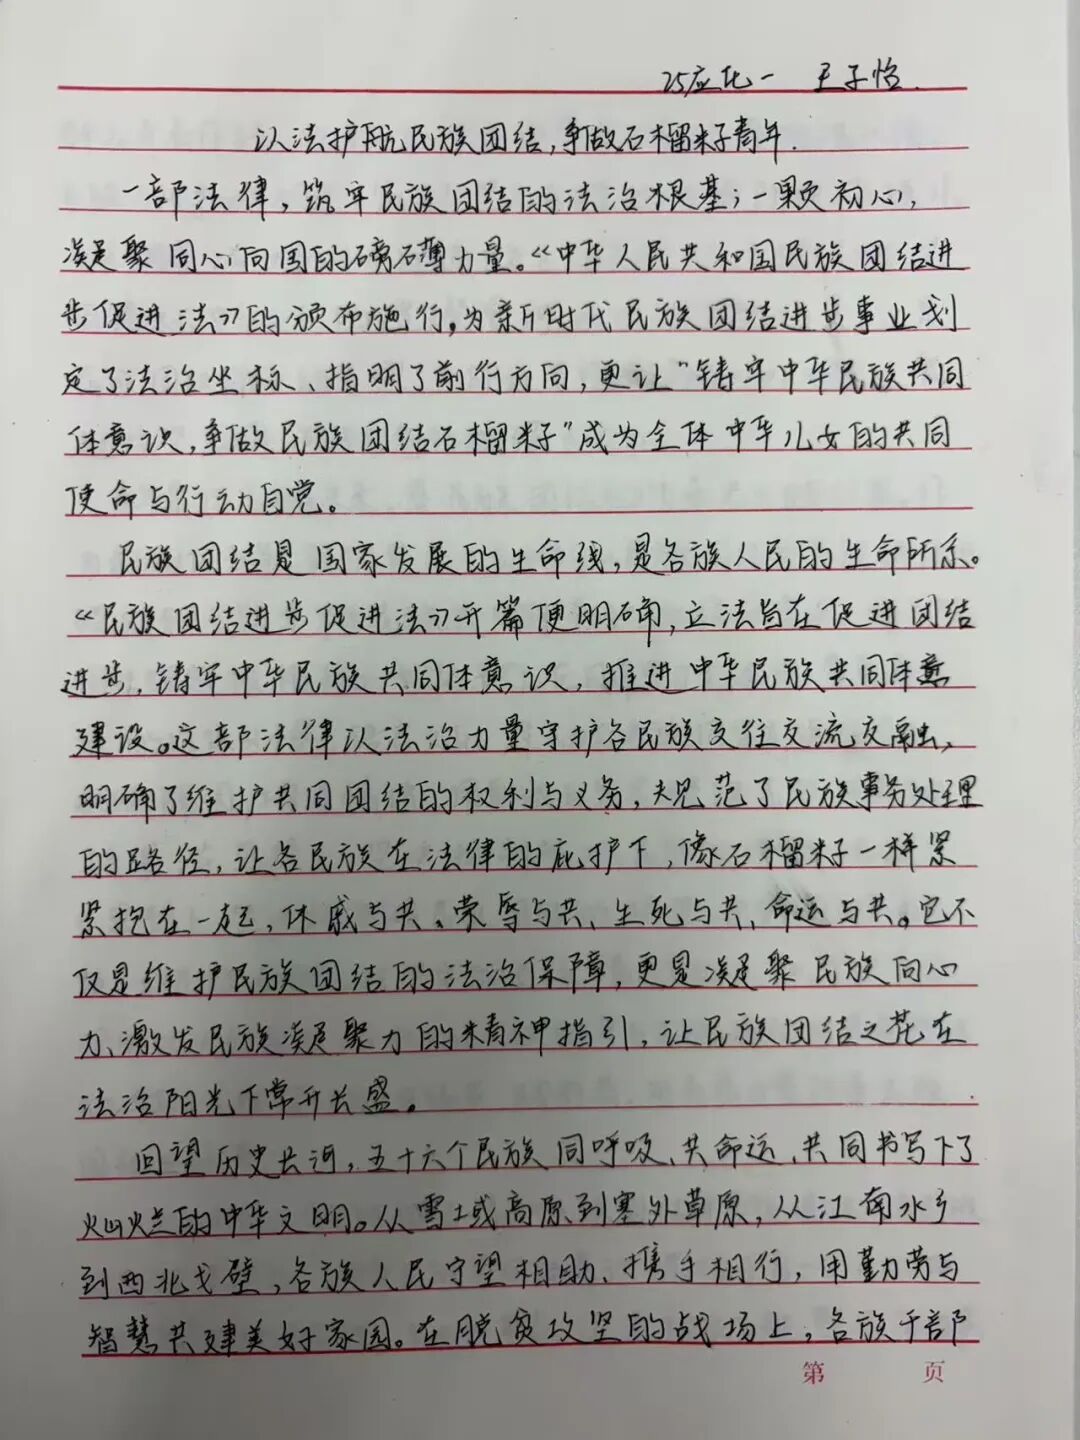 25应化一 王子怡.
以法护航民族团结,争做石榴籽青年.
一部法律，筑牢民族团结的法治根基；一颗初心，
凝聚同心向国的磅礴力量。《中华人民共和国民族团结进
步促进法》的颁布施行,为新时代民族团结进步事业划
定了法治坐标、指明了前行方向，更让“铸牢中华民族共同
体意识，争做民族团结石榴籽”成为全体中华儿女的共同
使命与行动自觉。
民族团结是国家发展的生命线，是各族人民的生命所系。
《民族团结进步促进法》开篇便明确，立法旨在促进团结
进步，铸牢中华民族共同体意识，推进中华民族共同体意
建设。这部法律以法治力量守护各民族交往交流交融，
明确了维护共同团结的权利与义务，规范了民族事务处理
的路径，让各民族在法律的庇护下，像石榴籽一样紧
紧抱在一起，休戚与共、荣辱与共、生死与共、命运与共。它不
仅是维护民族团结的法治保障，更是凝聚民族向心
力、激发民族凝聚力的精神指引，让民族团结之花在
法治阳光下常开长盛。
回望历史长河，五十六个民族同呼吸、共命运、共同书写下了
灿烂的中华文明。从雪域高原到塞外草原，从江南水乡
到西北戈壁，各族人民守望相助、携手相行，用勤劳与
智慧共建美好家园。在脱贫攻坚的战场上，各族干部
第 页